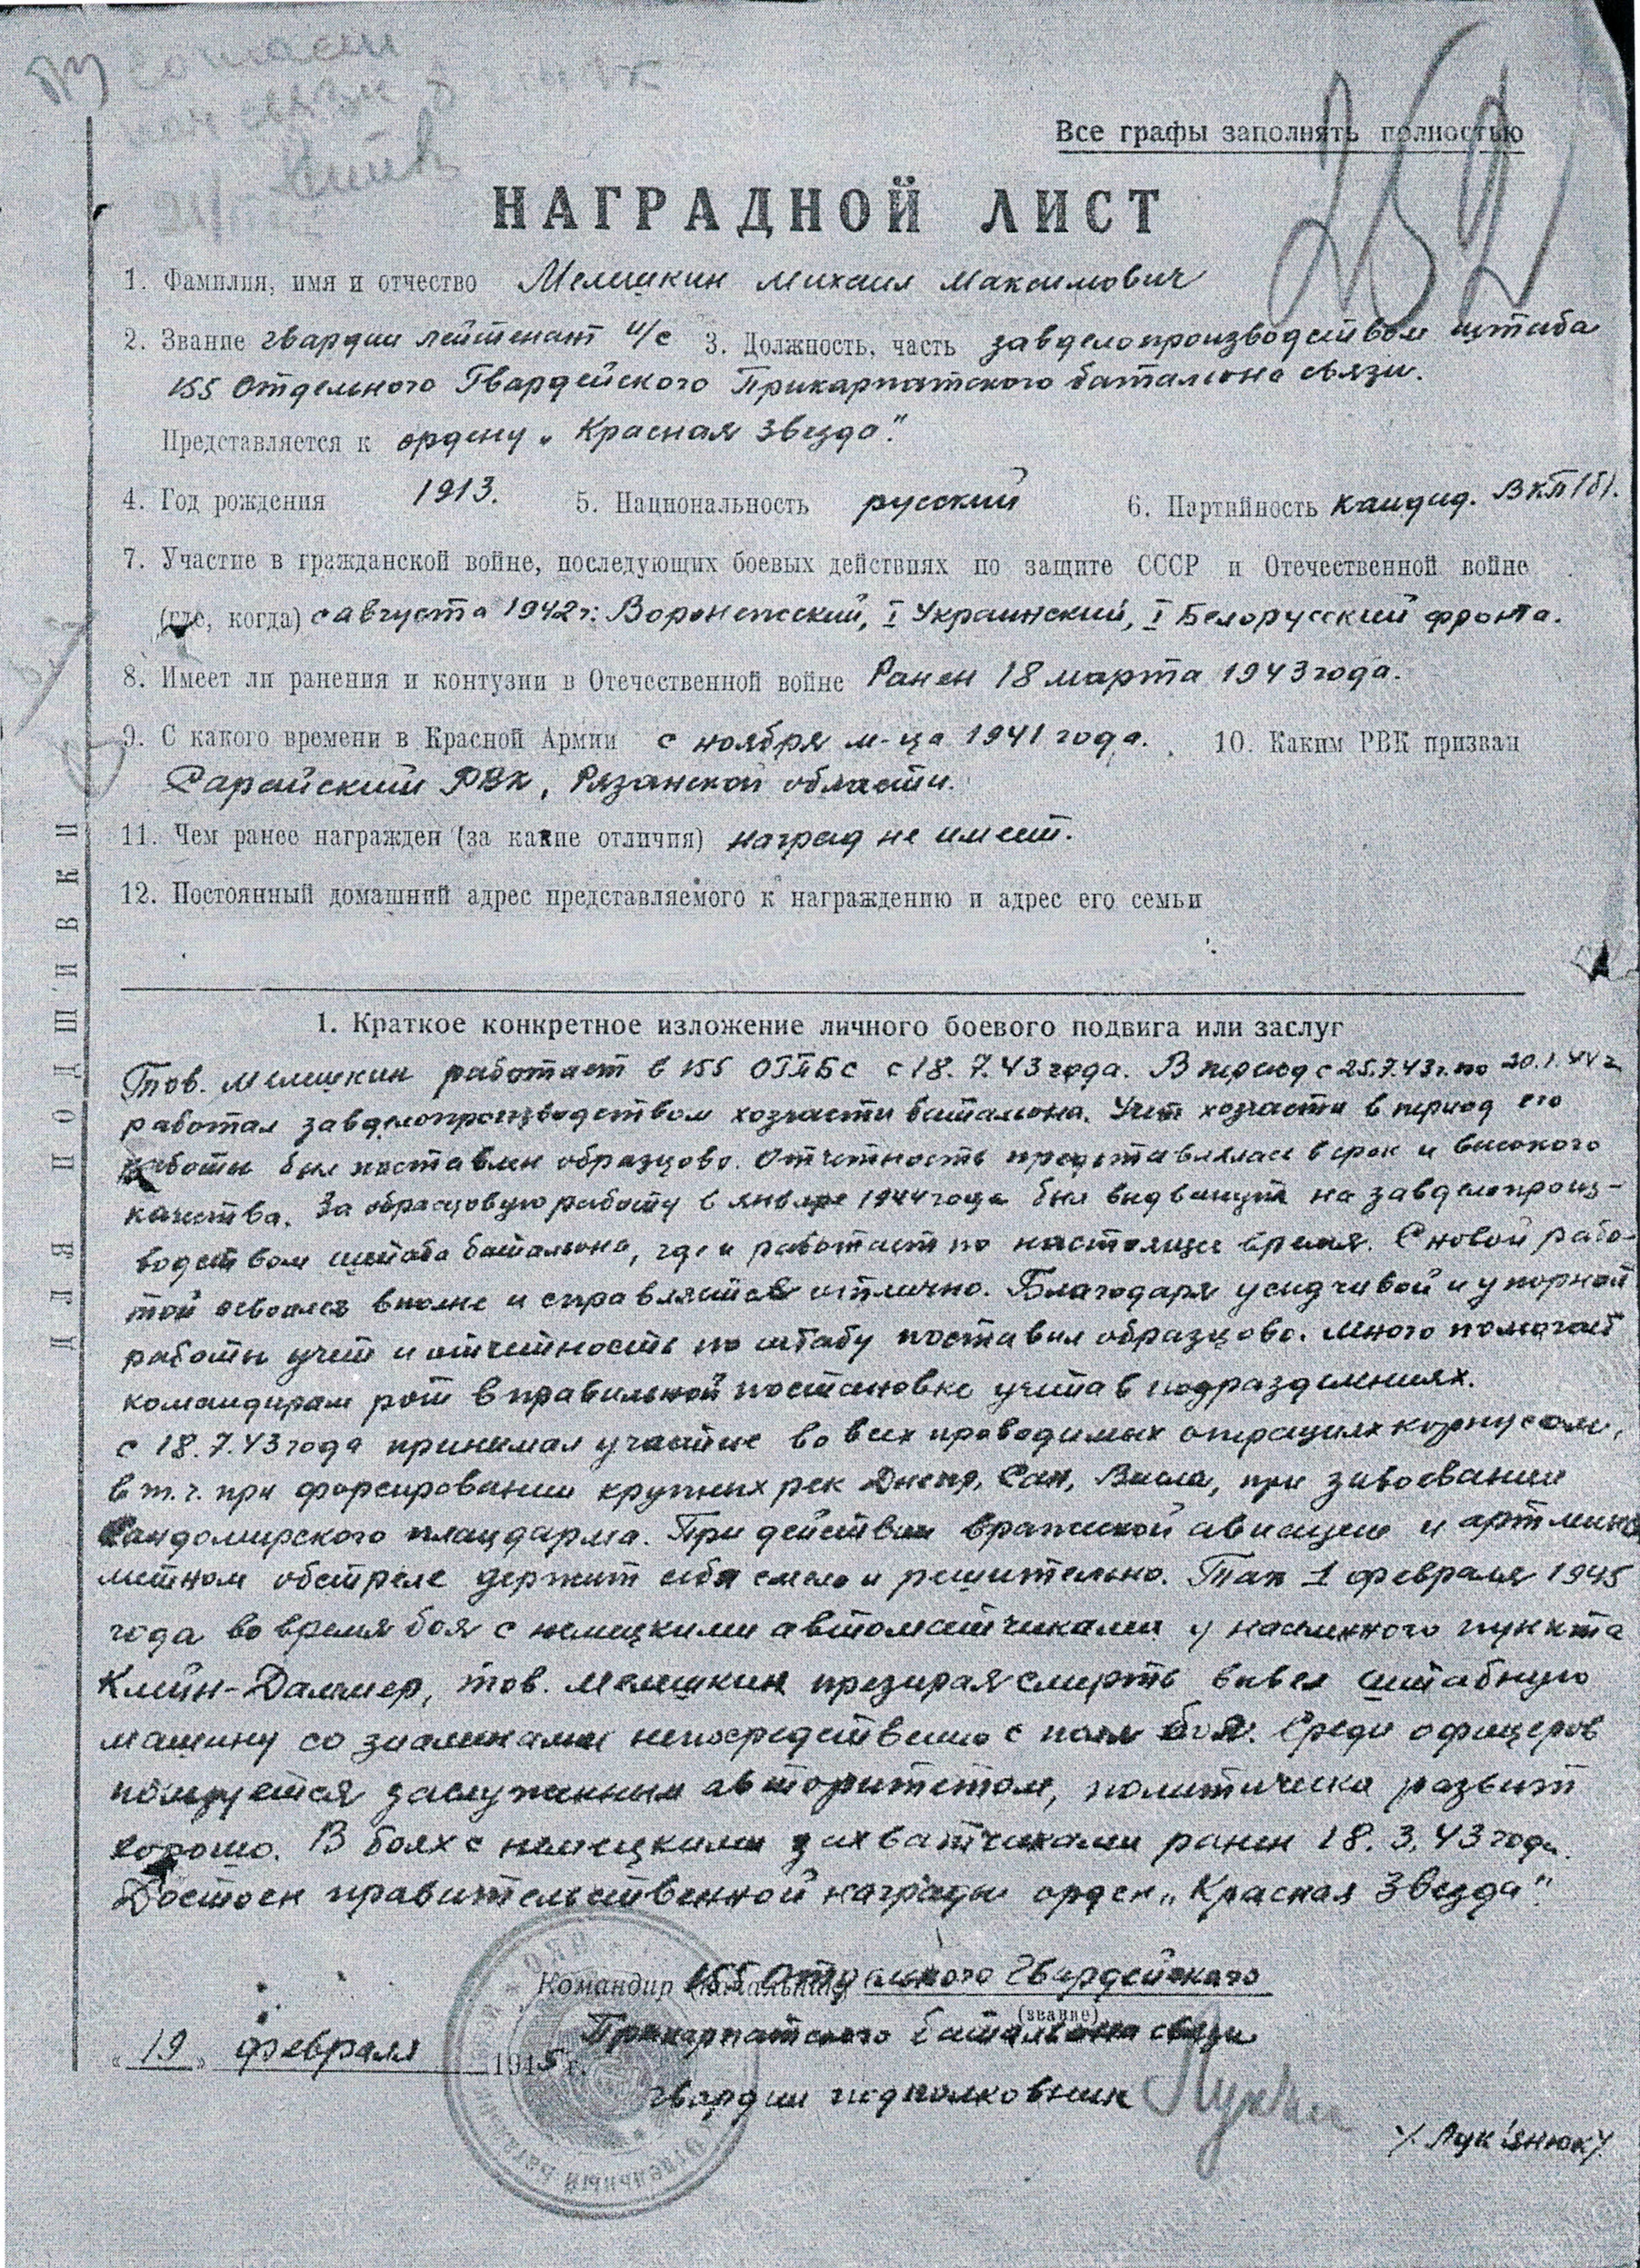 Все графы заполнять полностью
252
НАГРАДНОЙ ЛИСТ
1. Фамилия, имя и отчество Мелешкин Михаил Максимович
2. Звание гвардии лейтенант и/с 3. Должность, часть завделопроизводством штаба
155 Отдельного Гвардейского Прикарпатского баталиона связи.
Представляется к ордену „Красная Звезда".
4. Год рождения 1913. 5. Национальность русский 6. Партийность кандид. ВКП(б).
7. Участие в гражданской войне, последующих боевых действиях по защите СССР и Отечественной войне
(где, когда) с августа 1942 г: Воронежский, I Украинский, I Белорусский фронта.
8. Имеет ли ранения и контузии в Отечественной войне Ранен 18 марта 1943 года.
9. С какого времени в Красной Армии с ноября м-ца 1941 года. 10. Каким РВК призван
Сарайский РВК, Рязанской области.
11. Чем ранее награжден (за какие отличия) наград не имеет.
12. Постоянный домашний адрес представляемого к награждению и адрес его семьи
ДЛЯ ПОДШИВКИ
1. Краткое конкретное изложение личного боевого подвига или заслуг
Тов. Мелешкин работает в 155 ОГПБС с 18.7.43 года. В период с 25.7.43г. по 20.1.44 г
работал завделопроизводством хозчасти баталиона. Учет хозчасти в период его
работы был поставлен образцово. Отчетность представлялась в срок и высокого
качества. За образцовую работу в январе 1944 года был выдвинут на завделопроиз-
водством штаба баталиона, где и работает по настоящее время. С новой рабо-
той освоился вполне и справляется отлично. Благодаря усидчивой и упорной
работы учет и отчетность по штабу поставил образцово. Много помогает
командирам рот в правильной постановке учета в подразделениях.
с 18.7.43 года принимал участие во всех проводимых операциях корпусом,
в т.ч. при форсировании крупных рек Днепр, Сан, Висла, при завоевании
Сандомирского плацдарма. При действии вражеской авиации и артмино
метном обстреле держит себя смело и решительно. Так 1 февраля 1945
года во время боя с немецкими автоматчиками у населенного пункта
Клейн-Даммер, тов. Мелешкин презирая смерть вывел штабную
машину со знаменами непосредственно с поля боя. Среди офицеров
пользуется заслуженным авторитетом, политически развит
хорошо. В боях с немецкими захватчиками ранен 18.3.43 года.
Достоен правительственной награды орден „Красная Звезда".
Командир 155 Отдельного Гвардейского
(звание)
Прикарпатского баталиона связи
„19" февраля 1945 г.
гвардии подполковник
/Лук'янюк/